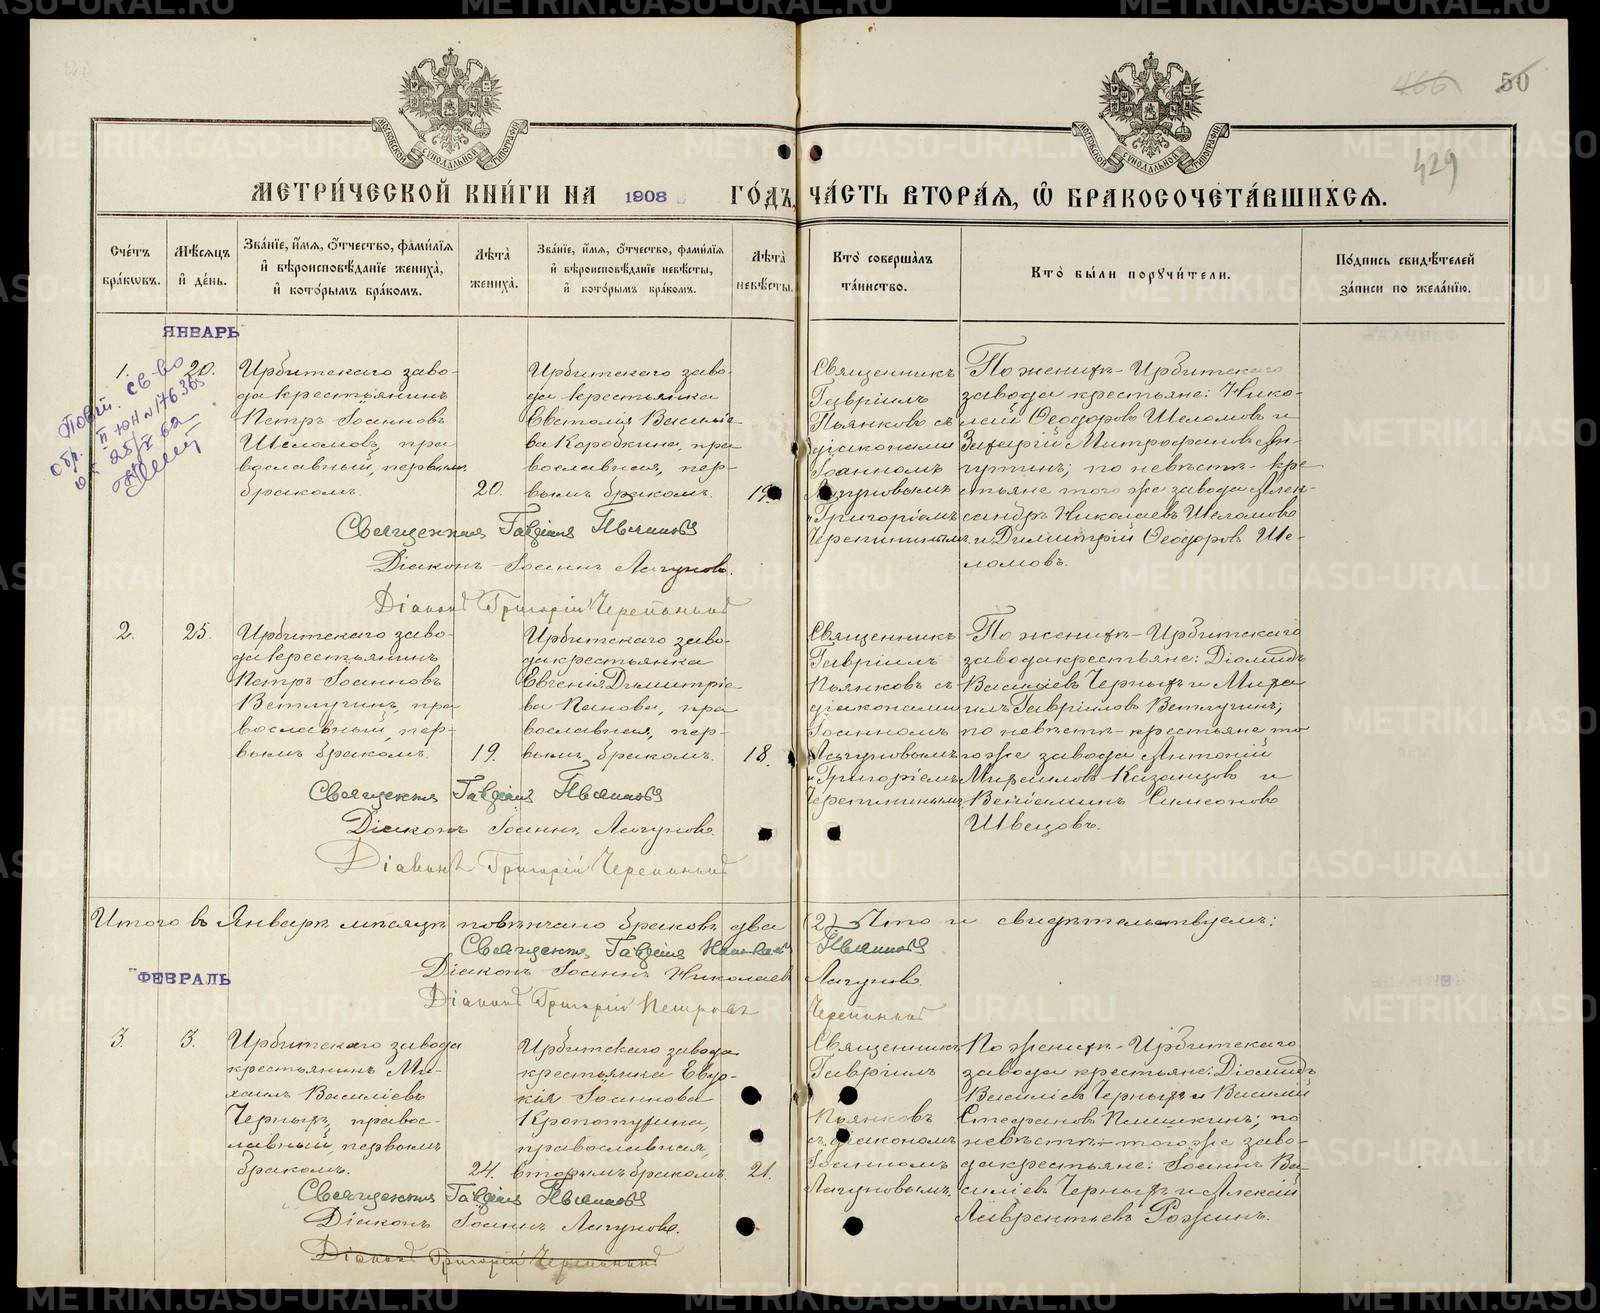 466 50
429
МОСКОВСКОЙ СѴНОДАЛЬНОЙ ТИПОГРАФІИ
МОСКОВСКОЙ СѴНОДАЛЬНОЙ ТИПОГРАФІИ
МЕТРИ́ЧЕСКОЙ КНИ́ГИ НА 1908 ГО́ДЪ, ЧА́СТЬ ВТОРА́Я, Ѽ БРАКОСОЧЕТА́ВШИХСЯ.
Сче́тъ бра́кωвъ.
Мѣ́сяцъ и҆ де́нь.
Зва́нїе, и҆́мя, ѻ҆́тчество, фами́лїя и҆ вѣроисповѣ́данїе жениха̀, и҆ кото́рымъ бра́комъ.
Лѣ́та жениха̀.
Зва́нїе, и҆́мя, ѻ҆́тчество, фами́лїя и҆ вѣроисповѣ́данїе невѣ́сты, и҆ кото́рымъ бра́комъ.
Лѣ́та невѣ́сты.
Кто̀ соверша́лъ та́инство.
Кто̀ бы́ли порꙋчи́тели.
По́дпись свидѣ́телей за́писи по жела́нїю.
ЯНВАРЬ
1.
20.
Ирбитскаго заво-
да крестьянинъ
Петръ Іоанновъ
Шеломовъ, пра
вославный, первымъ
бракомъ.
20.
Ирбитскаго заво-
да крестьянка
Евстолія Василье-
ва Коробкина, пра
вославная, пер-
вымъ бракомъ.
19.
Священникъ
Гавріилъ
Пьянковъ съ
діаконами
Іоанномъ
Лагуновымъ
и Григоріемъ
Черепнинымъ.
По женихѣ - Ирбитскаго
завода крестьяне: Нико-
лай Ѳеодоровъ Шеломовъ и
Митрофановъ Ан-
чутинъ; по невѣстѣ - кре
стьяне того же завода Алек-
сандръ Николаевъ Шеломовъ
и Димитрій Ѳеодоровъ Ше-
ломовъ.
Повт. св-во
II-ЮН № 176365
от 25/V 62
Священникъ Гавріилъ Пьянковъ
Діаконъ Іоаннъ Лагуновъ.
Діаконъ Григорій Черепнинъ
2.
25.
Ирбитскаго заво-
да крестьянинъ
Петръ Іоанновъ
Ветлугинъ, пра
вославный, пер-
вымъ бракомъ.
19.
Ирбитскаго заво-
да крестьянка
Евгенія Димитріе-
ва Панова, пра
вославная, пер-
вымъ бракомъ.
18.
Священникъ
Гавріилъ
Пьянковъ съ
діаконами
Іоанномъ
Лагуновымъ
и Григоріемъ
Черепнинымъ.
По женихѣ - Ирбитскаго
завода крестьяне: Діомидъ
Василіевъ Черныхъ и Миха
илъ Гавріиловъ Ветлугинъ;
по невѣстѣ - крестьяне то
го же завода Антоній
Михаиловъ Казанцовъ и
Веніаминъ Симеоновъ
Швецовъ.
Священникъ Гавріилъ Пьянковъ
Діаконъ Іоаннъ Лагуновъ.
Діаконъ Григорій Черепнинъ
Итого въ Январѣ мѣсяцѣ повѣнчано браковъ два (2) Что и свидѣтельствуемъ:
Священникъ Гавріилъ Пьянковъ
Діаконъ Іоаннъ Николаевъ Лагуновъ.
Діаконъ Григорій Петровъ Черепнинъ
ФЕВРАЛЬ
3.
3.
Ирбитскаго завода
крестьянинъ Ми-
хаилъ Василіевъ
Черныхъ, правос-
лавный, первымъ
бракомъ.
24.
Ирбитскаго завода
крестьянка Евдо-
кія Іоаннова
Кропотухина,
православная,
вторымъ бракомъ.
21.
Священникъ
Гавріилъ
Пьянковъ
съ діакономъ
Іоанномъ
Лагуновымъ.
По женихѣ - Ирбитскаго
завода крестьяне: Діомидъ
Василіевъ Черныхъ и Василій
Стефановъ Пишкинъ; по
невѣстѣ - того же заво-
да крестьяне: Іоаннъ Ва-
силіевъ Черныхъ и Алексій
Лаврентьевъ Рожинъ.
Священникъ Гавріилъ Пьянковъ
Діаконъ Іоаннъ Лагуновъ.
Діаконъ Григорій Черепнинъ
METRIKI.GASO-URAL.RU